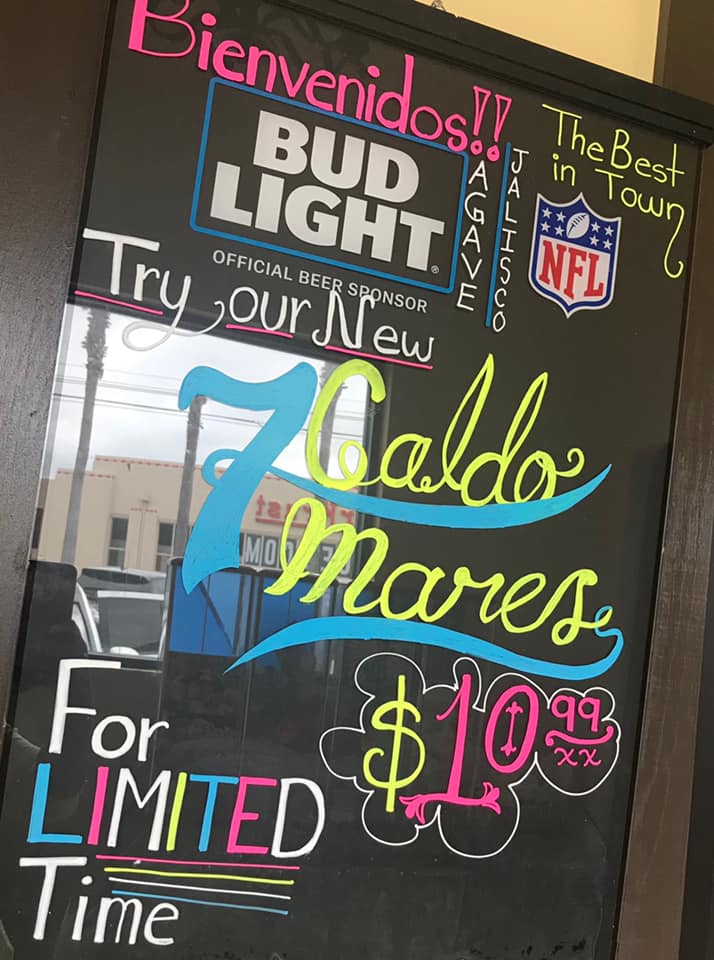 Bienvenidos!!
BUD
LIGHT
®
OFFICIAL BEER SPONSOR
AGAVE
JALISCO
The Best
in Town
NFL
Try our New
7 Caldo
Mares
$10.99
xx
For
LIMITED
Time